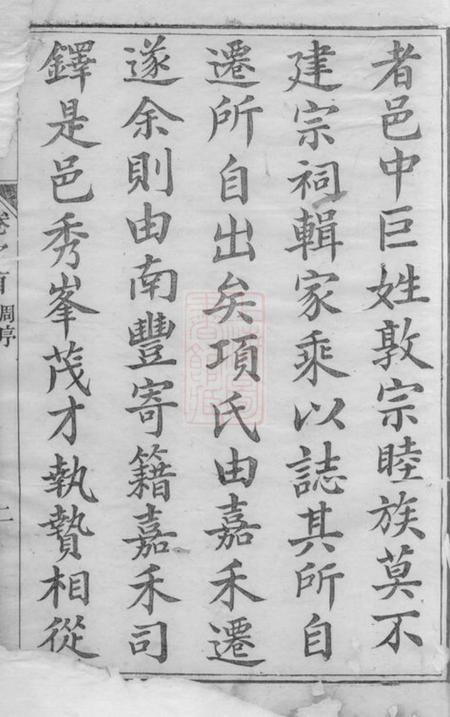 者邑中巨姓敦宗睦族莫不
建宗祠輯家乘以誌其所自
遷所自出矣項氏由嘉禾遷
遂余則由南豐寄籍嘉禾司
鐸是邑秀峯茂才執贄相從
卷首 周序
二